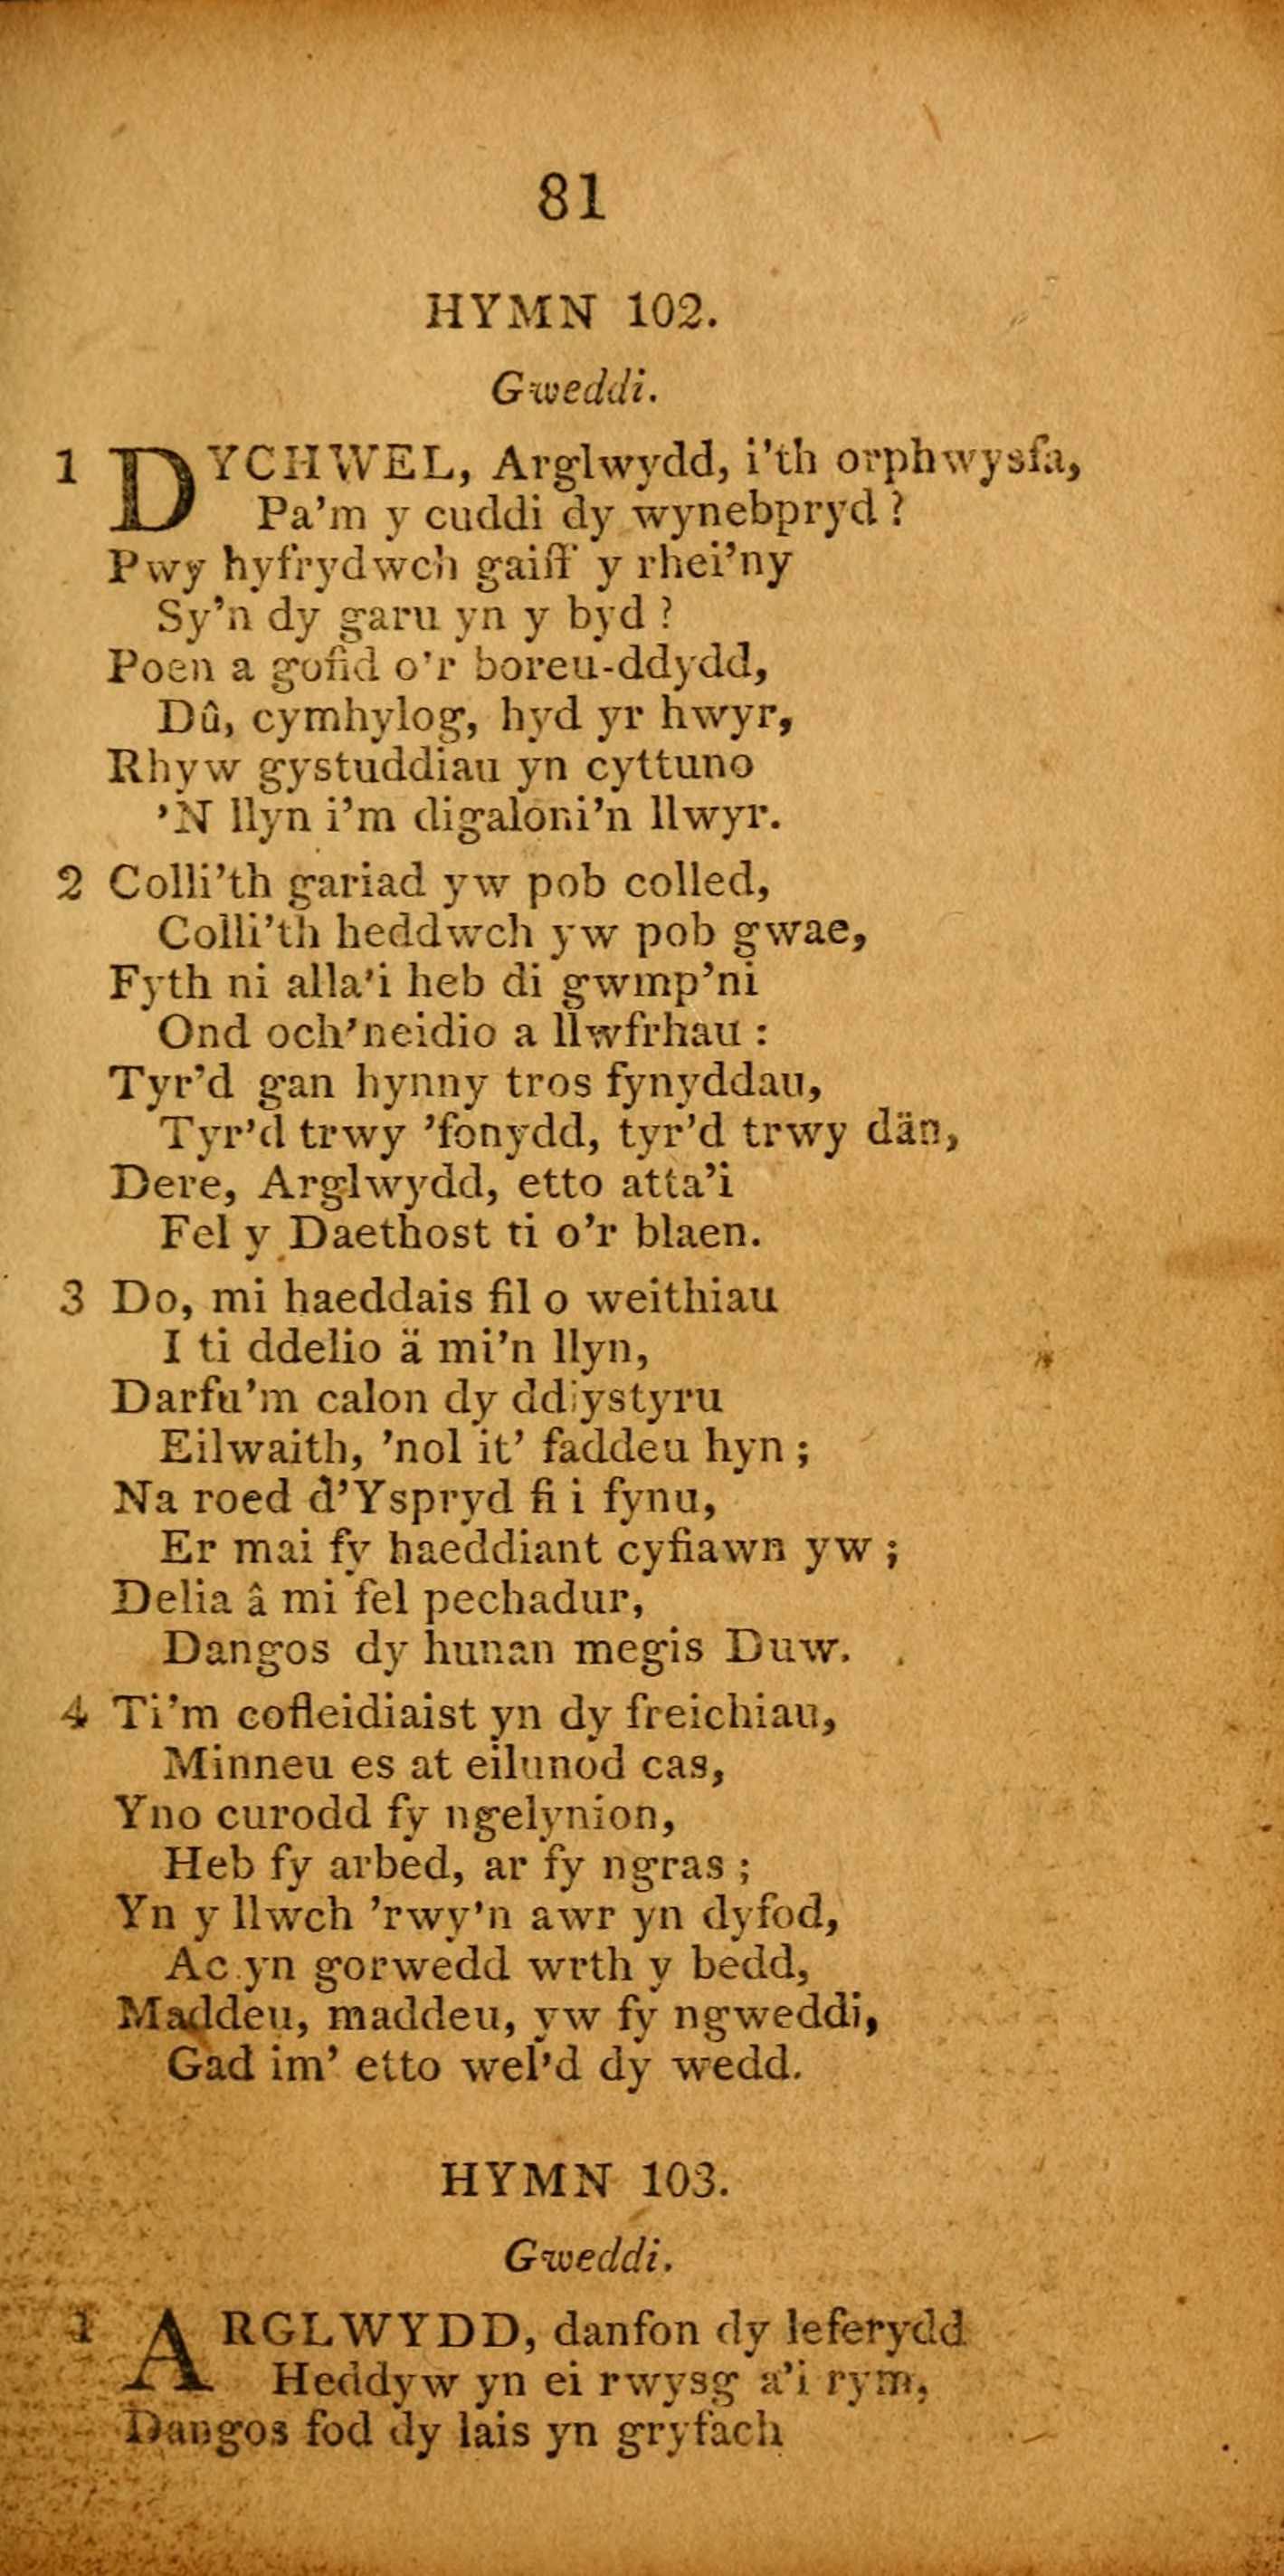 81
HYMN 102.
Gweddi.
1 DYCHWEL, Arglwydd, i'th orphwysfa,
Pa'm y cuddi dy wynebpryd ?
Pwy hyfrydwch gaiff y rhei'ny
Sy'n dy garu yn y byd ?
Poen a gofid o'r boreu-ddydd,
Dû, cymhylog, hyd yr hwyr,
Rhyw gystuddiau yn cyttuno
'N llyn i'm digaloni'n llwyr.
2 Colli'th gariad yw pob colled,
Colli'th heddwch yw pob gwae,
Fyth ni alla'i heb di gwmp'ni
Ond och'neidio a llwfrhau :
Tyr'd gan hynny tros fynyddau,
Tyr'd trwy 'fonydd, tyr'd trwy dän,
Dere, Arglwydd, etto atta'i
Fel y Daethost ti o'r blaen.
3 Do, mi haeddais fil o weithiau
I ti ddelio ä mi'n llyn,
Darfu'm calon dy ddiystyru
Eilwaith, 'nol it' faddeu hyn ;
Na roed d'Yspryd fi i fynu,
Er mai fy haeddiant cyfiawn yw ;
Delia â mi fel pechadur,
Dangos dy hunan megis Duw.
4 Ti'm cofleidiaist yn dy freichiau,
Minneu es at eilunod cas,
Yno curodd fy ngelynion,
Heb fy arbed, ar fy ngras ;
Yn y llwch 'rwy'n awr yn dyfod,
Ac yn gorwedd wrth y bedd,
Maddeu, maddeu, yw fy ngweddi,
Gad im' etto wel'd dy wedd.
HYMN 103.
Gweddi.
1 ARGLWYDD, danfon dy leferydd
Heddyw yn ei rwysg a'i rym,
Dangos fod dy lais yn gryfach